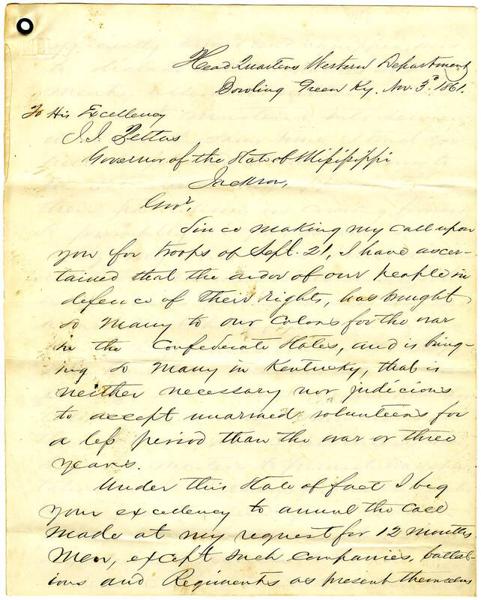 Head Quarters Western Department
Bowling Green Ky, Nov. 3d. 1861.
To His Excellency
J. J. Pettus
Governor of the State of Mississippi
Jackson,
Gov.,
Since making my call upon
you for troops of Sept. 21, I have ascer-
tained that the ardor of our people in
defence of their rights, has brought
so many to our colors for the war
in the Confederate States, and is bring-
ing so many in Kentucky, that is
neither necessary nor judicious
to accept unarmed volunteers for
a less period than the war or three
years.
Under this State of fact I beg
your excellency to annul the call
made at my request for 12 months
men, except such companies, battal-
ions and Regiments as present themselves